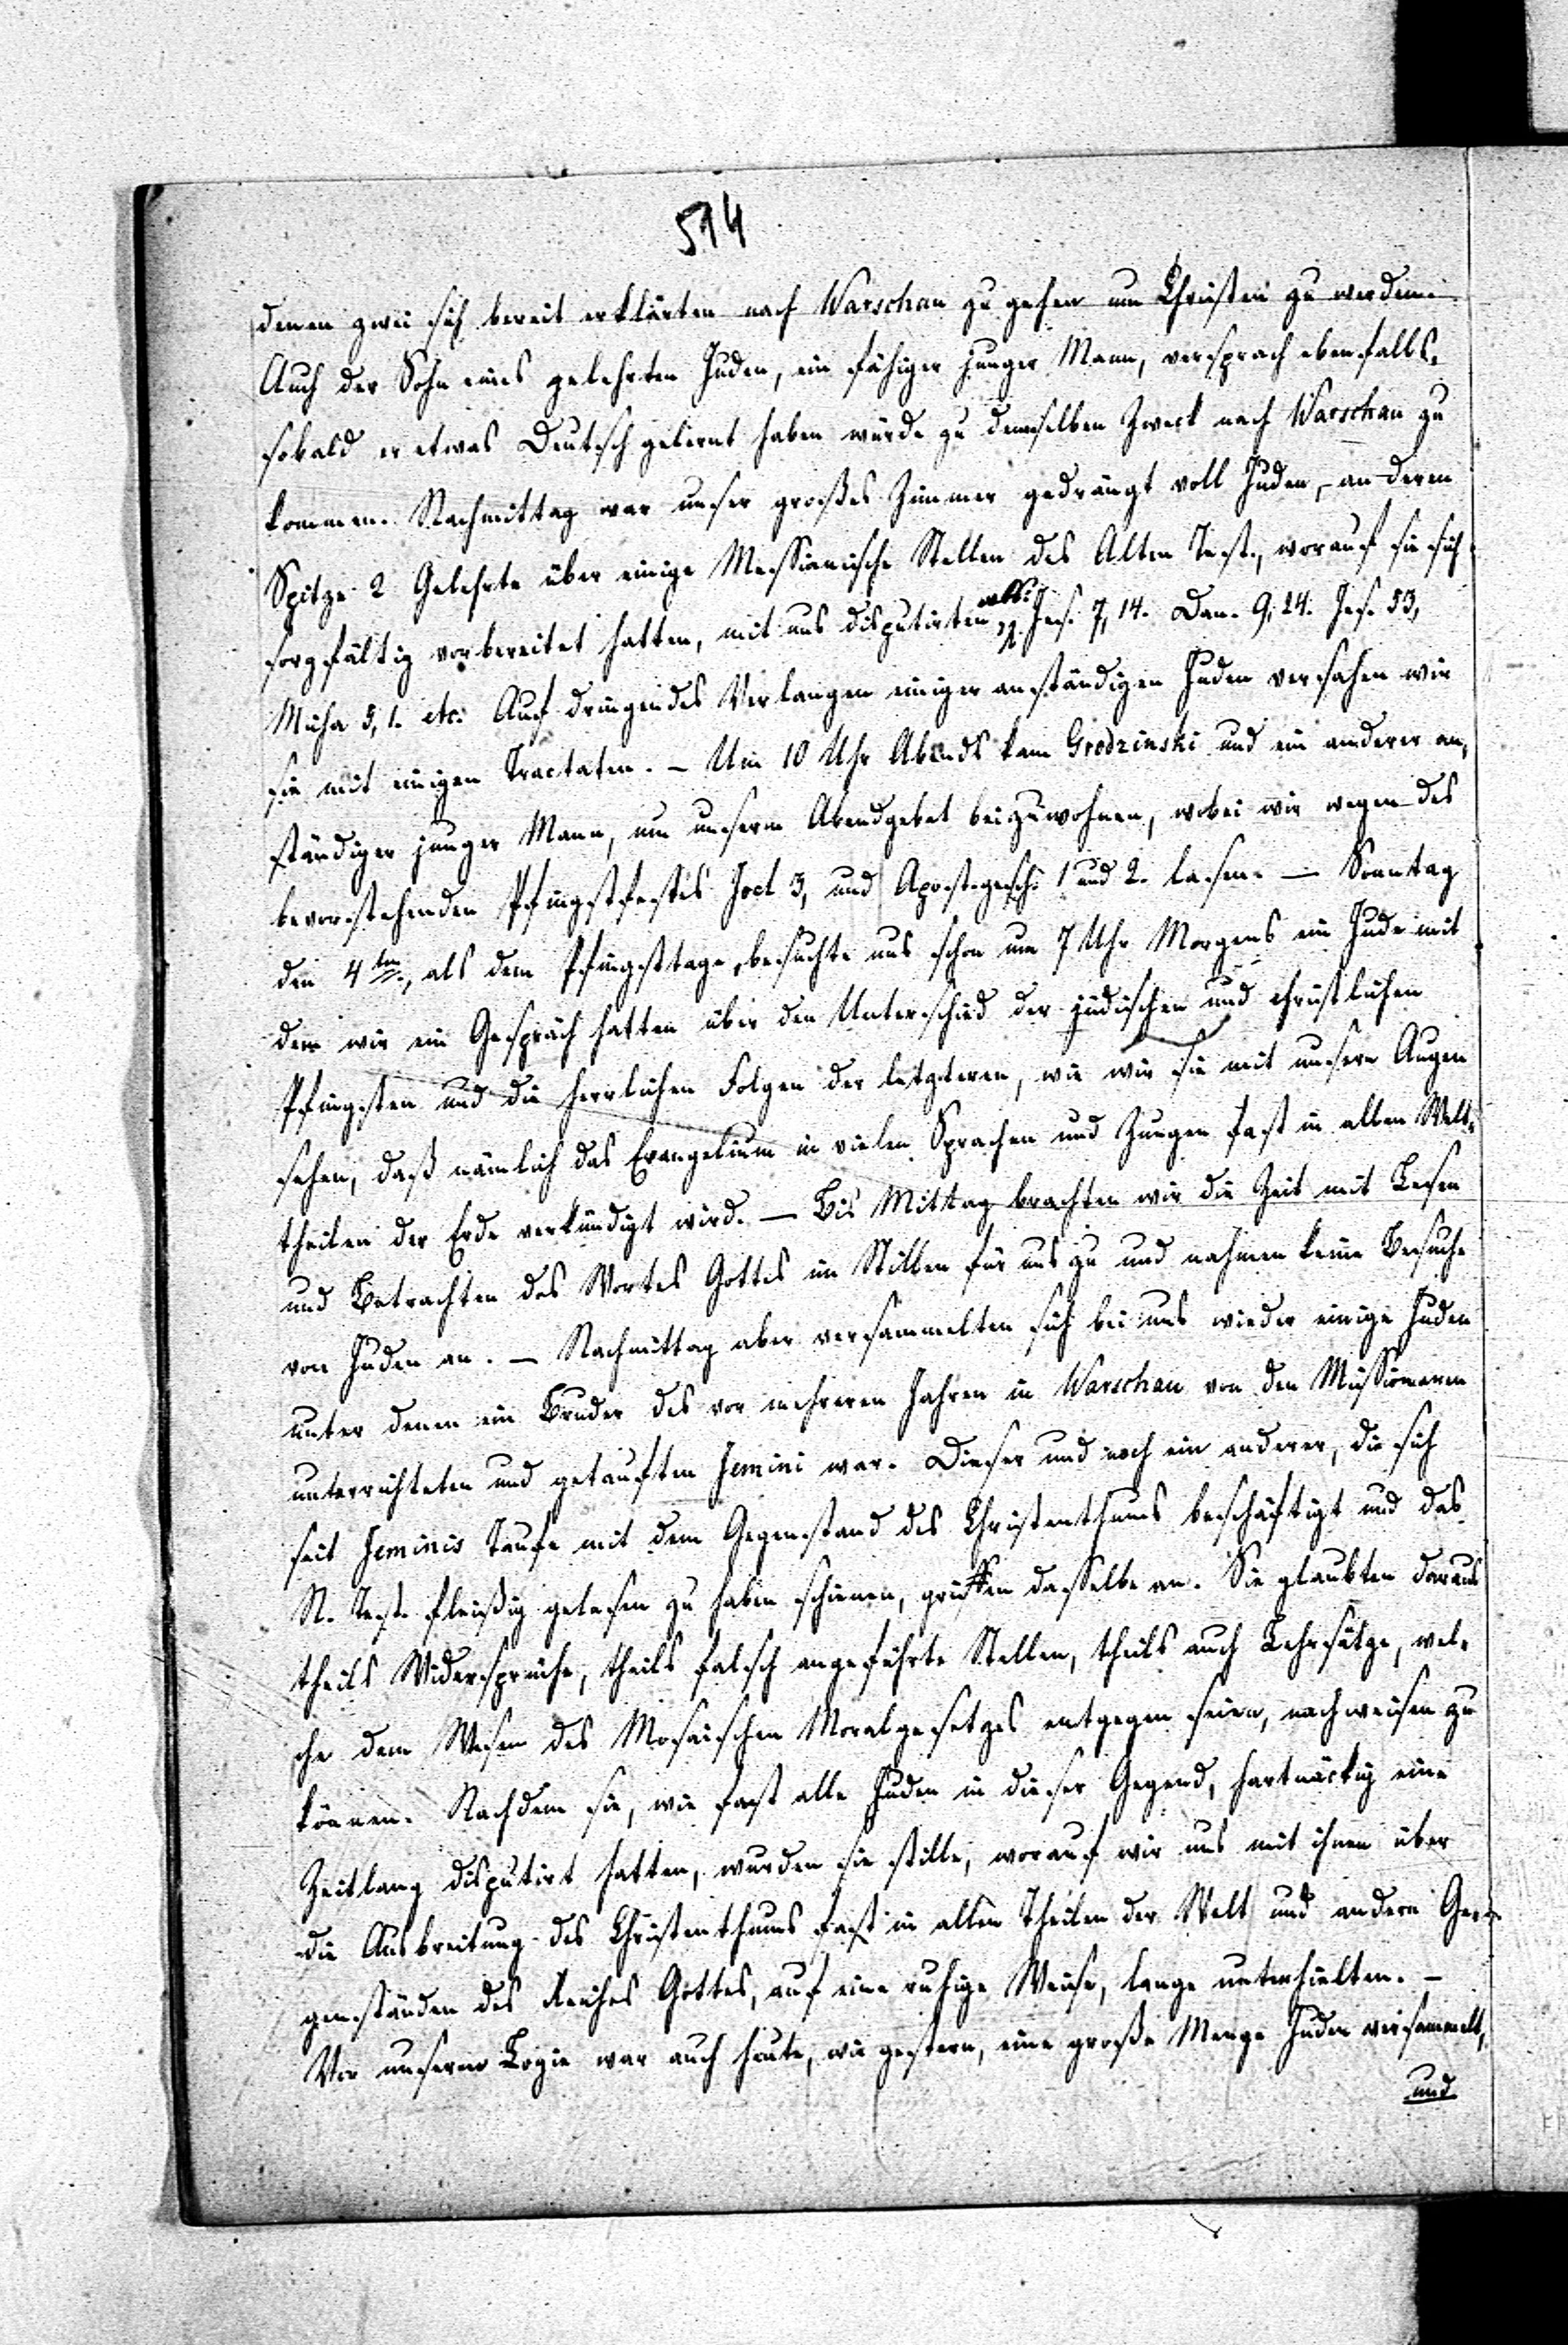 514
denen zwei sich bereit erklärten nach Warschau zu gehen um Christen zu werden.
Auch der Sohn eines gelehrten Juden, ein fähiger junger Mann, versprach ebenfalls,
sobald er etwas Deutsch gelernt haben würde zu demselben Zweck nach Warschau zu
kommen. Nachmittag war unser großes Zimmer gedrängt voll Juden, an deren
Spitze 2 Gelehrte über einige Messianische Stellen des Alten Test., worauf sie sich
sorgfältig vorbereitet hatten, mit uns disputirten Jes. 7, 14. Dan. 9, 24. Jes. 53,
Micha 5, 1. etc. Auf dringendes Verlangen einiger anständigen Juden versahen wir
sie mit einigen Tractaten. – Um 10 Uhr Abends kam Grodzinski und ein anderer an-
ständiger junger Mann, um unserm Abendgebet beizuwohnen, wobei wir wegen des
bevorstehenden Pfingstfestes Joel 3, und Apostgesch. 1 und 2. lasen. — Sonntag
den 4ten, als dem Pfingsttage, besuchte uns schon um 7 Uhr Morgens ein Jude mit
dem wir ein Gespräch hatten über den Unterschied der jüdischen und christlichen
Pfingsten und die herrlichen Folgen der letzteren, wie wir sie mit unsern Augen
sehen, daß nämlich das Evangelium in vielen Sprachen und Zungen fast in allen Welt-
theilen der Erde verkündigt wird. — Bis Mittag brachten wir die Zeit mit Lesen
und Betrachten des Wortes Gottes im Stillen für uns zu und nahmen keine Besuche
von Juden an. — Nachmittag aber versammelten sich bei uns wieder einige Juden
unter denen ein Bruder des vor mehreren Jahren in Warschau von den Missionaren
unterrichteten und getauften Jemini war. Dieser und noch ein anderer, die sich
seit Jeminis Taufe mit dem Gegenstand des Christenthums beschäftigt und das
N. Test. fleißig gelesen zu haben schienen, griffen dasselbe an. Sie glaubten daraus
theils Widersprüche, theils falsch angeführte Stellen, theils auch Lehrsätze, wel-
che dem Wesen des Mosaischen Moralgesetzes entgegen seien, nachweisen zu
können. Nachdem sie, wie fast alle Juden in dieser Gegend, hartnäckig eine
Zeitlang disputirt hatten, wurden sie stille, worauf wir uns mit ihnen über
die Ausbreitung des Christenthums fast in allen Theilen der Welt und andern Ge-
genständen des Reiches Gottes, auf eine ruhige Weise, lange unterhielten. –
Vor unserm Logie war auch heute, wie gestern, eine große Menge Juden versammelt,
und